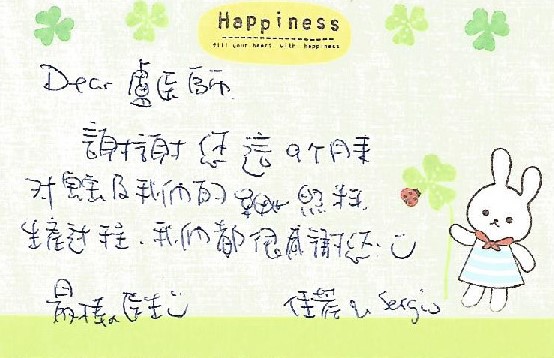 Happiness
fill your heart with happiness
Dear 盧醫師
謝謝您這9个月來
对寶寶及我們的照料,
生產过程、我們都很感謝您.
最棒的醫生
佳蓉 & Sergio